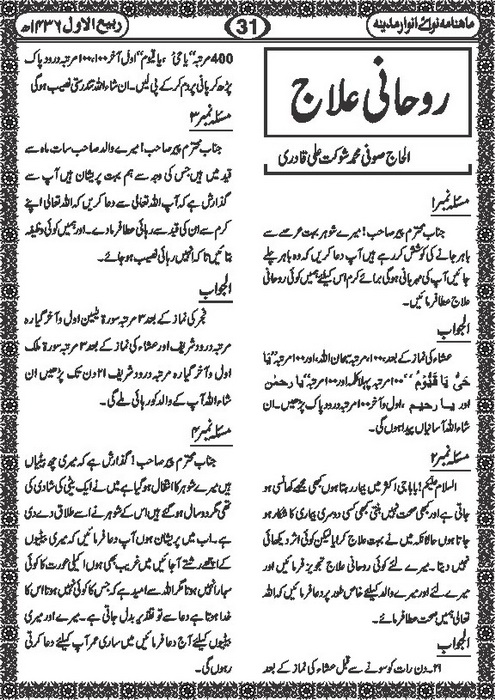 ماہنامہ نوائے انوار مدینہ
31
ربیع الاول ۱۴۳۶ھ
روحانی علاج
الحاج صوفی محمد شوکت علی قادری
مسئلہ نمبر۱
جناب محترم پیر صاحب! میرے شوہر بہت عرصے سے
باہر جانے کی کوشش کر رہے ہیں آپ دعا کریں کہ وہ باہر چلے
جائیں آپ کی مہربانی ہوگی برائے کرم اس کیلئے ہمیں کوئی روحانی
علاج عطا فرمائیں۔
الجواب
عشاء کی نماز کے بعد ۱۰۰، مرتبہ سبحان اللہ، اور ۱۰۰ مرتبہ "یَا
حَیُّ یَا قَیُّوْمُ"، ۱۰۰ مرتبہ پہلا کلمہ اور ۱۰۰ مرتبہ "یا رحمٰن
اور یا رحیم، اول و آخر ۱۰۰ مرتبہ درود پاک پڑھیں۔ ان
شاء اللہ آسانیاں پیدا ہوں گی۔
مسئلہ نمبر۲
السلام علیکم! بابا جی اکثر میں بیمار رہتا ہوں کبھی مجھے کھانسی ہو
جاتی ہے اور کبھی صحت نہیں بنتی کبھی کسی دوسری بیماری کا شکار ہو
جاتا ہوں حالانکہ میں نے بہت علاج کرایا لیکن کوئی اثر دکھائی
نہیں دیتا۔ میرے لئے کوئی روحانی علاج تجویز فرمائیں اور
میرے لئے اور میرے والد کیلئے خاص طور پر دعا فرمائیں کہ اللہ
تعالیٰ ہمیں صحت عطا فرمائے۔
الجواب
۲۱۔ دن رات کو سونے سے قبل عشاء کی نماز کے بعد
400 مرتبہ "یا حی، یا قیوم" اول آخر ۱۰۰،۱۰۰ مرتبہ درود پاک
پڑھ کر پانی پر دم کر کے پی لیں۔ ان شاء اللہ تندرستی نصیب ہوگی
مسئلہ نمبر ۳
جناب محترم پیر صاحب! میرے والد صاحب سات ماہ سے
قید میں ہیں جس کی وجہ سے ہم بہت پریشان ہیں آپ سے
گذارش ہے کہ آپ اللہ تعالیٰ سے دعا کریں کہ اللہ تعالیٰ اپنے
کرم سے ان کی قید سے رہائی عطا فرما دے۔ اور ہمیں کوئی وظیفہ
بتائیں تا کہ انہیں رہائی نصیب ہو جائے۔
الجواب
فجر کی نماز کے بعد ۳ مرتبہ سورۃ یٰسین اول و آخر گیارہ
مرتبہ درود شریف اور عشاء کی نماز کے بعد ۳ مرتبہ سورۃ ملک
اول و آخر گیارہ مرتبہ درود شریف ۲۱ دن تک پڑھیں ان
شاء اللہ آپ کے والد کو رہائی ملے گی۔
مسئلہ نمبر ۴
جناب محترم پیر صاحب! گذارش ہے کہ میری چھ بیٹیاں
ہیں میرے شوہر کا انتقال ہو گیا ہے میں نے ایک بیٹی کی شادی کی
تھی مگر دو سال ہو گئے ہیں اس کے شوہر نے اسے طلاق دے دی
ہے۔ اب میں پریشان ہوں آپ دعا فرمائیں کہ میری بیٹیوں
کے اچھے رشتے آ جائیں میں غریب بھی ہوں اکیلی عورت کا کوئی
سہارا نہیں ہوتا مگر اللہ سے امید ہے کہ جس کا کوئی نہیں ہوتا اس کا
خدا ہوتا ہے دعا سے تو تقدیر بدل جاتی ہے۔ میرے اور میری
بیٹیوں کیلئے آج دعا فرمائیں میں ساری عمر آپ کیلئے دعا کرتی
رہوں گی۔